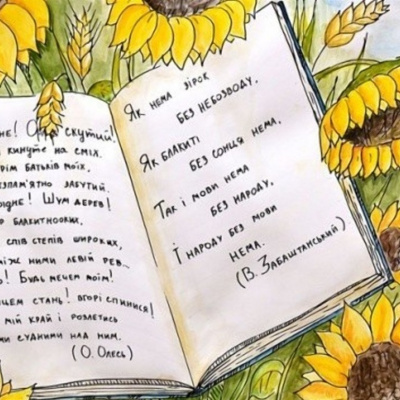 не! О скутий
кинуте на сміх.
рім батьків моїх,
зпам'ятно забутий.
рідне! Шум дерев!
о блакитнооких,
спів степів широких,
між ними левій рев...
! Будь мечем моїм!
чем стань! вгорі спинися!
мій край і розлетись
ми судними над ним.
(О. Олесь)
Як нема зірок
без небозводу,
Як блакиті
без сонця нема,
Так і мови нема
без народу,
Ї народу без мови
нема.
(В. Забаштанський)